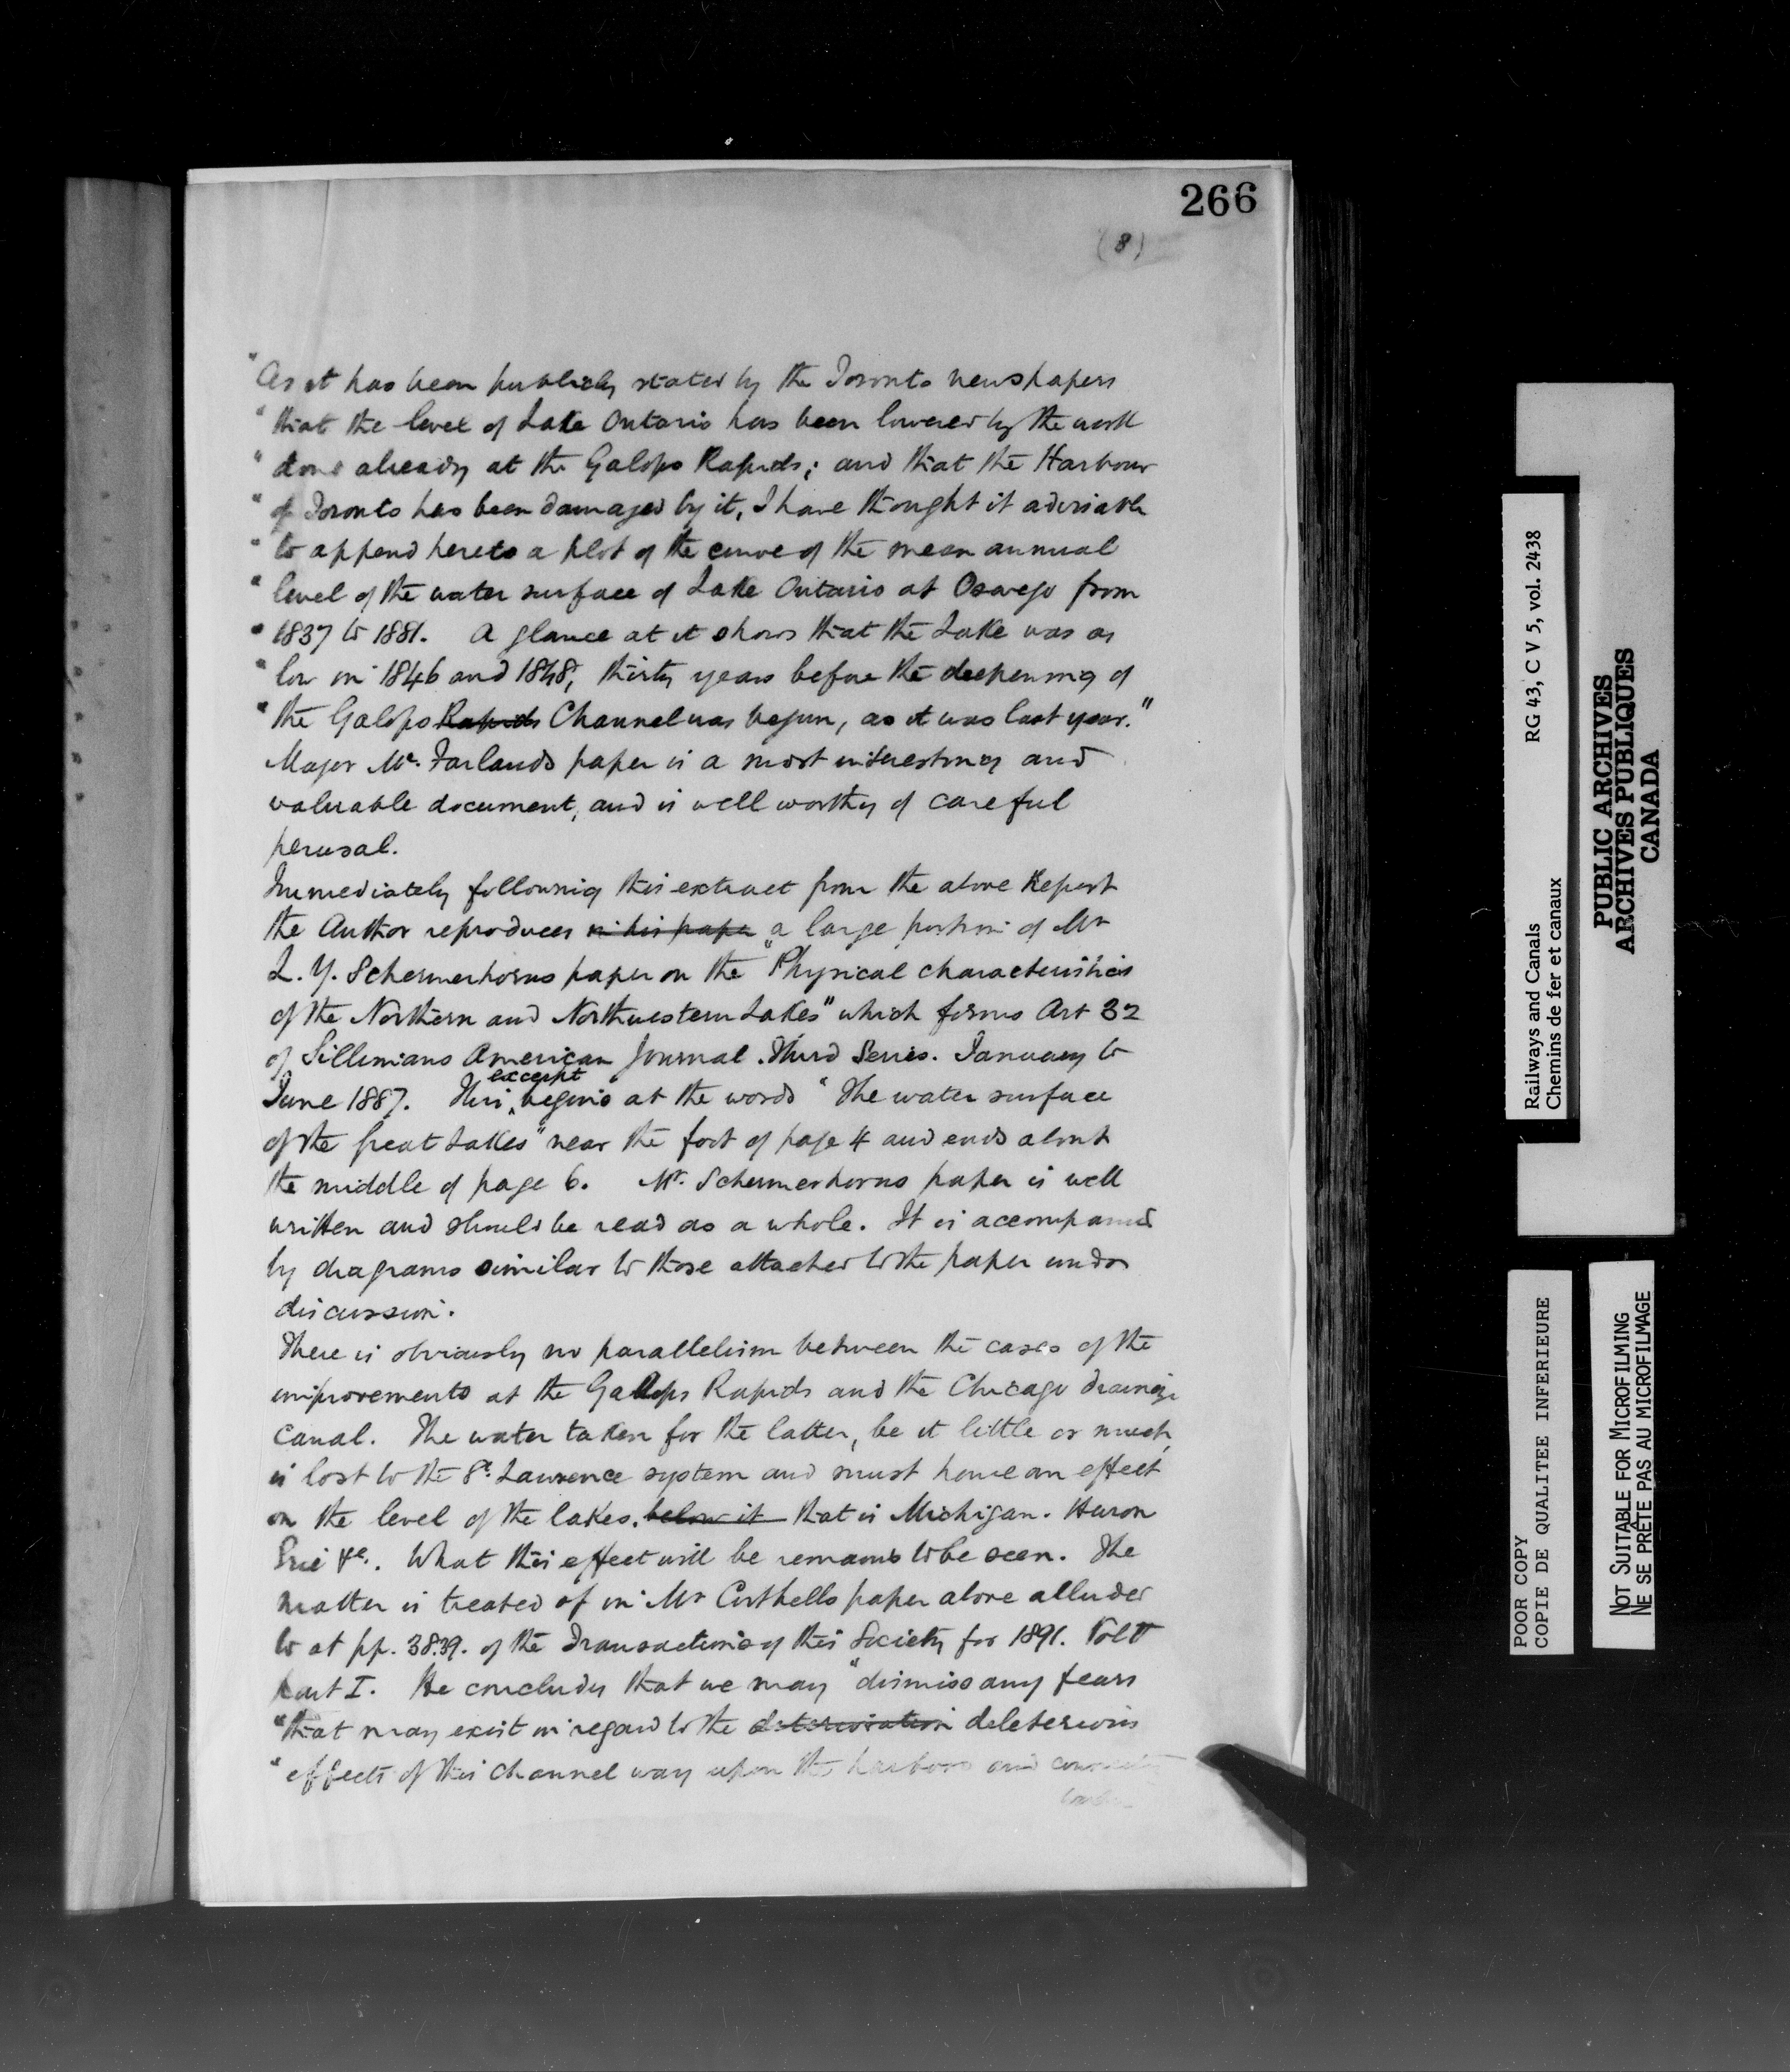 266
(8)
"As it has been publicly stated by the Toronto newspapers
"that the level of Lake Ontario has been lowered by the work
"done already at the Galops Rapids; and that the Harbour
"of Toronto has been damaged by it, I have thought it advisable
"to append hereto a plot of the curve of the mean annual
"level of the water surface of Lake Ontario at Oswego from
"1837 to 1881. A glance at it shows that the Lake was as
"low in 1846 and 1848, thirty years before the deepening of
"the Galops Rapids Channel was begun, as it was last year."
Major Mc. Farlands paper is a most interesting and
valuable document, and is well worthy of careful
perusal.
Immediately following this extract from the above Report
the Author reproduces in his paper a large portion of Mr
L. Y. Schermerhorns paper on the "Physical characteristics
of the Northern and Northwestern Lakes" which forms Art 32
of Sillimans American Journal. Third Series. January to
excerpt
June 1887. This begins at the words "The water surface
of the Great Lakes" near the foot of page 4 and ends about
the middle of page 6. Mr. Schermerhorns paper is well
written and should be read as a whole. It is accompanied
by diagrams similar to those attached to the paper under
discussion.
There is obviously no parallelism between the cases of the
improvements at the Gallops Rapids and the Chicago drainage
canal. The water taken for the latter, be it little or much,
is lost to the St. Lawrence system and must have an effect
on the level of the lakes. below it that is Michigan. Huron
Erie &c. What this effect will be remains to be seen. The
matter is treated of in Mr Cuthells paper above alluded
to at pp. 38.39. of the Transactions of this Society for 1891. Vol V
part I. He concludes that we may "dismiss any fears
"that may exist in regard to the deterioration deleterious
"effects of this channel way upon the harbors and
RG 43, C V 5, vol. 2438
Railways and Canals
Chemins de fer et canaux
PUBLIC ARCHIVES
ARCHIVES PUBLIQUES
CANADA
POOR COPY
COPIE DE QUALITEE INFERIEURE
NOT SUITABLE FOR MICROFILMING
NE SE PRÊTE PAS AU MICROFILMAGE